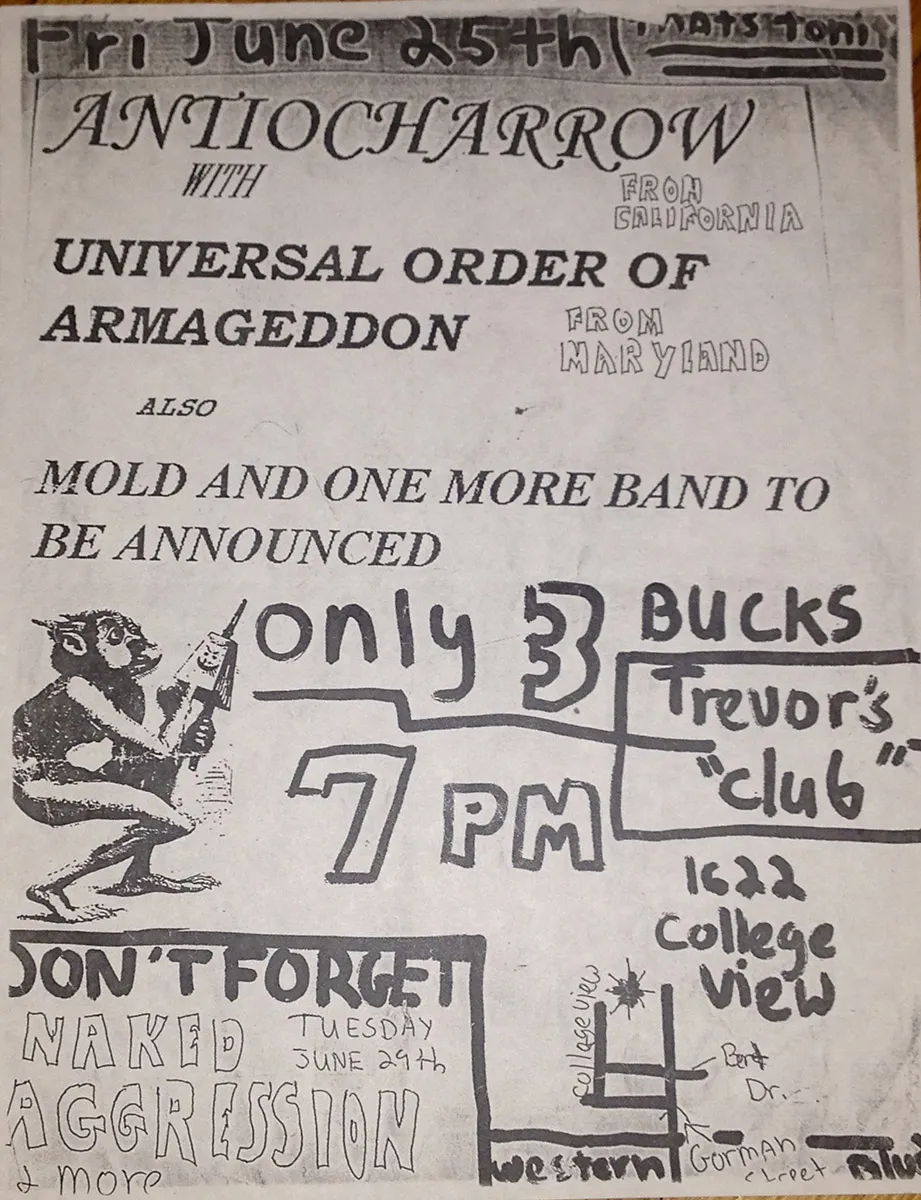 Fri June 25th (thats toni
ANTIOCHARROW
WITH
FROM
CALIFORNIA
UNIVERSAL ORDER OF
ARMAGEDDON
FROM
MARYLAND
ALSO
MOLD AND ONE MORE BAND TO
BE ANNOUNCED
only 3 BUCKS
7 PM
Trevor's
"club"
1622
College
View
DON'T FORGET
NAKED
TUESDAY
JUNE 29th
AGGRESSION
& more
College View
Dr.
Gorman
street
Western Blvd